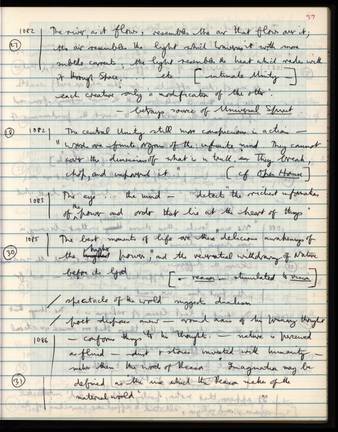 37
1082 The river, as it flows, resembles the air that flows over it;
(27) the air resembles the light which traverses it with more
subtle currents; the light resembles the heat which rides with
it through Space; etc [intimate Unity]
each creature only a modification of the other.
— betrays source of Universal Spirit
1082 The central Unity still more conspicuous in actions —
"Words are finite organs of the infinite mind. They cannot
cover the dimensions of what is in truth. They break,
chop, and impoverish it." [cf
1083 The eye ... the mind — detects the
of the power and order that lie at the heart of things.
1085 The best moments of life are these delicious awakenings of
(30) the higher powers, and the reverential withdrawing of Nature
before its God.
[— reason — stimulated to vision]
/ spectacle of the world suggests dualism
/ poet — around axis of his primary thought
1086 — conforms things to his thought. — nature is perceived
as fluid — dust & stones invested with humanity —
makes them the words of the Reason. Imagination may be
(31) defined as the use which the Reason makes of the
material world.